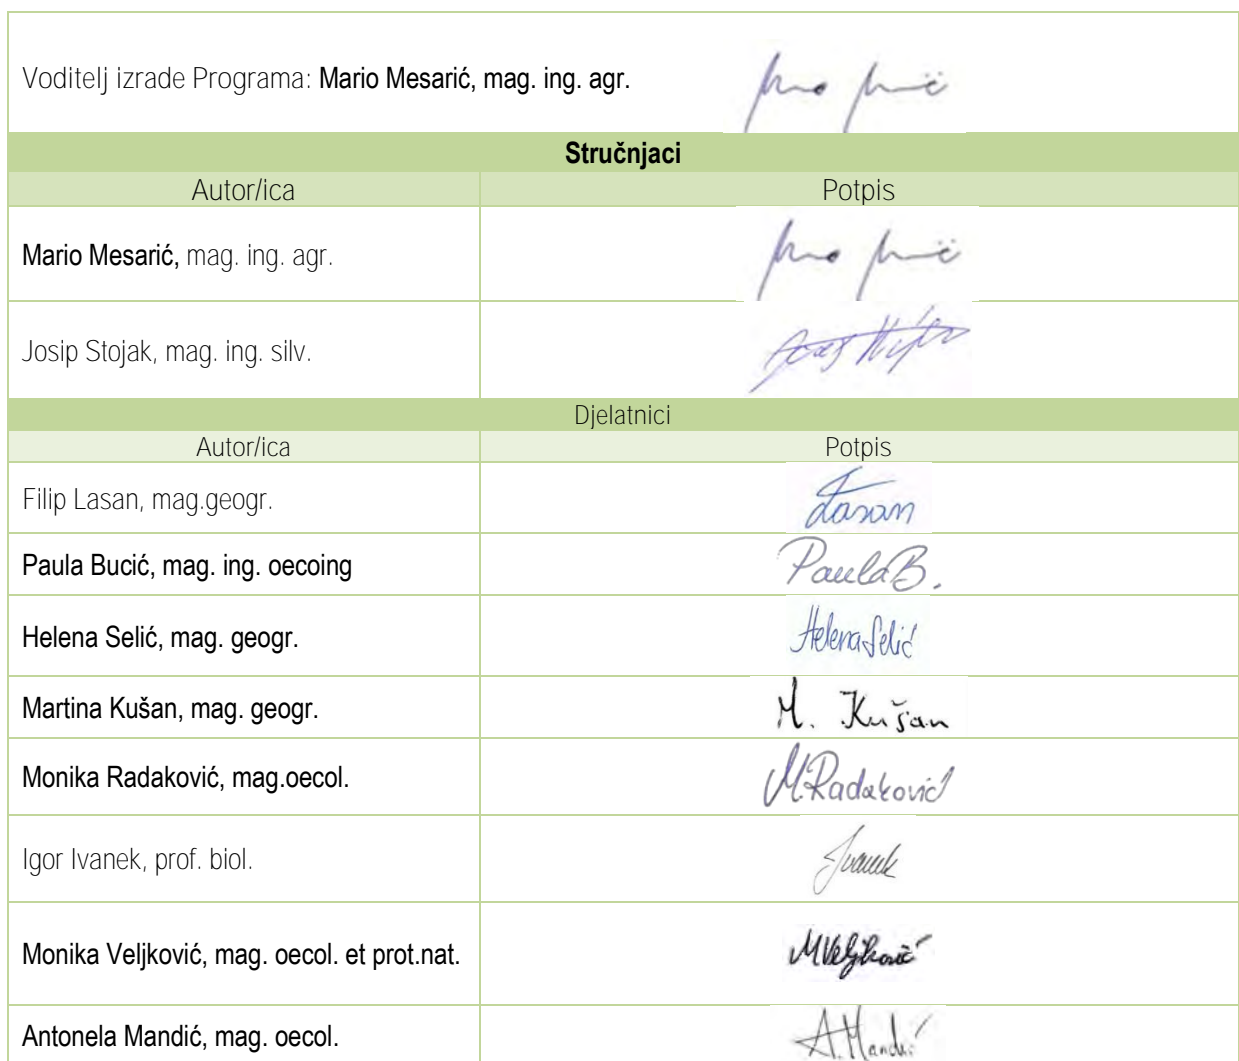 Voditelj izrade Programa: Mario Mesarić, mag. ing. agr.
Stručnjaci
Autor/ica Potpis
Mario Mesarić, mag. ing. agr.
Josip Stojak, mag. ing. silv.
Djelatnici
Autor/ica Potpis
Filip Lasan, mag.geogr. Lasan
Paula Bucić, mag. ing. oecoing PaulaB.
Helena Selić, mag. geogr. Helena Selić
Martina Kušan, mag. geogr. M. Kušan
Monika Radaković, mag.oecol. M.Radaković
Igor Ivanek, prof. biol. Ivanek
Monika Veljković, mag. oecol. et prot.nat. MVeljković
Antonela Mandić, mag. oecol. A.Mandić